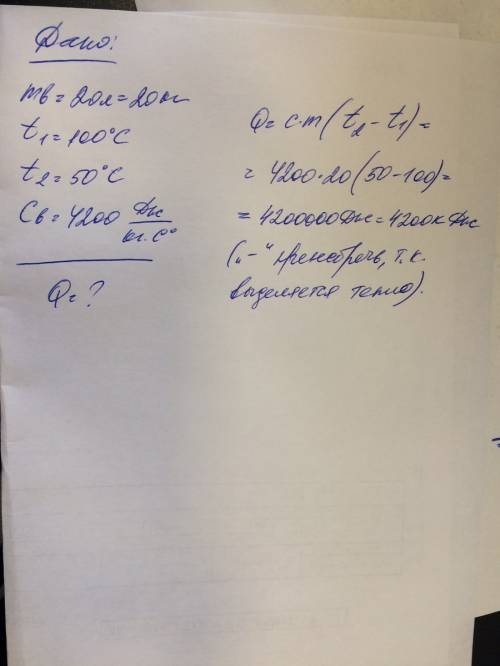 Дано:
mв = 20л = 20кг
t1 = 100°C
t2 = 50°C
Cв = 4200 Дж/кг·C°
Q = ?
Q = c·m(t2 - t1) =
= 4200·20(50-100) =
= 4200000Дж = 4200кДж
(„-“ пренебречь, т.к.
выделяется тепло).